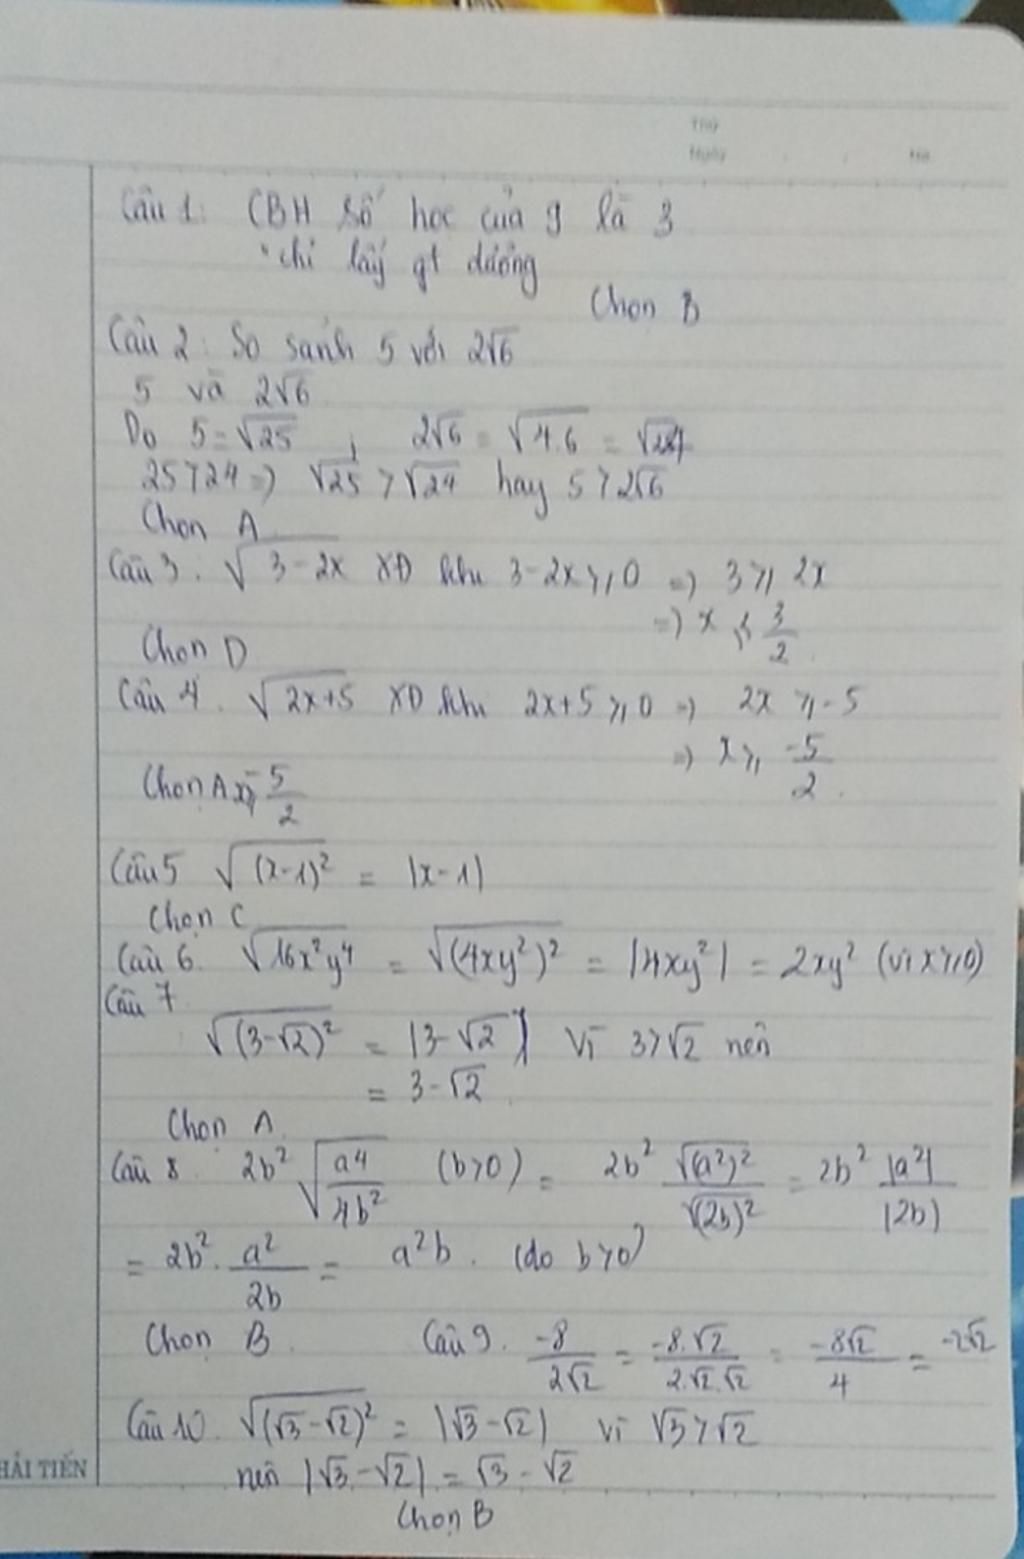 Thứ
Ngày
No.
Câu 1: CBH số học của 9 là 3
chỉ lấy gt dương
Chọn B
Câu 2: So sánh 5 với 2√6
5 và 2√6
Do 5 = √25 ; 2√6 = √4.6 = √24
25 > 24 => √25 > √24 hay 5 > 2√6
Chọn A
Câu 3. √(3-2x) XĐ khi 3-2x ≥ 0 => 3 ≥ 2x
=> x ≤ 3/2
Chọn D
Câu 4. √(2x+5) XĐ khi 2x+5 ≥ 0 => 2x ≥ -5
=> x ≥ -5/2
Chọn A x ≥ -5/2
Câu 5 √((x-1)²) = |x-1|
Chọn C
Câu 6. √(16x²y⁴) = √((4xy²)²) = |4xy²| = 2xy² (vì x ≥ 0)
Câu 7
√((3-√2)²) = |3-√2| Vì 3 > √2 nên
= 3-√2
Chọn A
Câu 8. 2b² √(a⁴/4b²) (b>0) = 2b² √((a²)²)/√((2b)²) = 2b² |a²|/|2b|
= 2b². a²/2b = a²b. (do b>0)
Chọn B. Câu 9. -8/2√2 = -8.√2/2.√2.√2 = -8√2/4 = -2√2
Câu 10. √((√3-√2)²) = |√3-√2| Vì √3 > √2
nên |√3-√2| = √3-√2
HẢI TIẾN
Chọn B